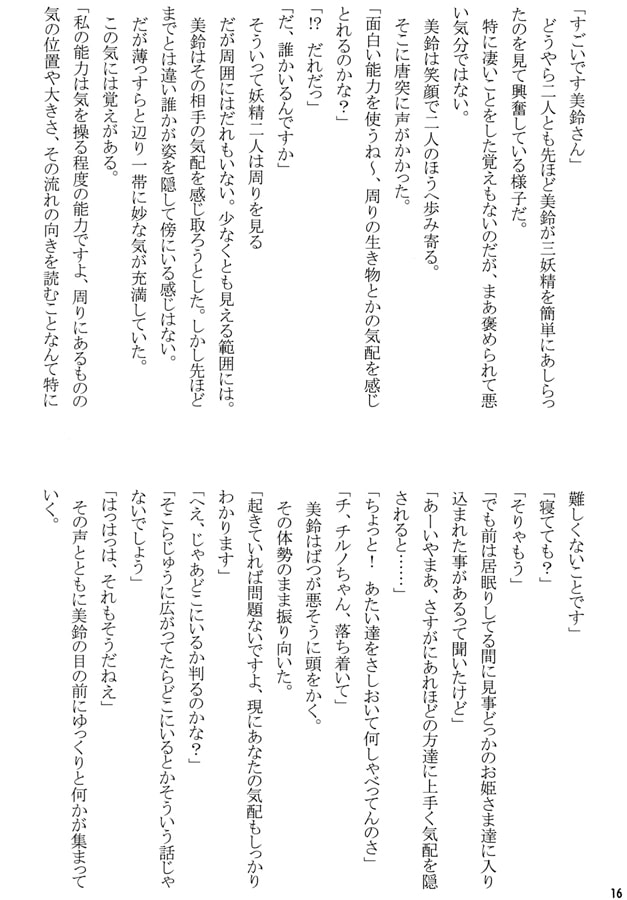 「すごいです美鈴さん」
　どうやら二人とも先ほど美鈴が三妖精を簡単にあしらっ
たのを見て興奮している様子だ。
　特に凄いことをした覚えもないのだが、まあ褒められて悪
い気分ではない。
　美鈴は笑顔で二人のほうへ歩み寄る。
　そこに唐突に声がかかった。
「面白い能力を使うね〜、周りの生き物とかの気配を感じ
とれるのかな？」
「!?　だれだっ」
「だ、誰かいるんですか」
　そういって妖精二人は周りを見る
　だが周囲にはだれもいない。少なくとも見える範囲には。
　美鈴はその相手の気配を感じ取ろうとした。しかし先ほど
までとは違い誰かが姿を隠して傍にいる感じはない。
　だが薄っすらと辺り一帯に妙な気が充満していた。
　この気には覚えがある。
「私の能力は気を操る程度の能力ですよ、周りにあるものの
気の位置や大きさ、その流れの向きを読むことなんて特に
難しくないことです」
「寝てても？」
「そりゃもう」
「でも前は居眠りしてる間に見事どっかのお姫さま達に入り
込まれた事があるって聞いたけど」
「あーいやまあ、さすがにあれほどの方達に上手く気配を隠
されると……」
「ちょっと！　あたい達をさしおいて何しゃべってんのさ」
「チ、チルノちゃん、落ち着いて」
　美鈴はばつが悪そうに頭をかく。
　その体勢のまま振り向いた。
「起きていれば問題ないですよ、現にあなたの気配もしっかり
わかります」
「へえ、じゃあどこにいるか判るのかな？」
「そこらじゅうに広がってたらどこにいるとかそういう話じゃ
ないでしょう」
「はっはっは、それもそうだねえ」
　その声とともに美鈴の目の前にゆっくりと何かが集まって
いく。
16